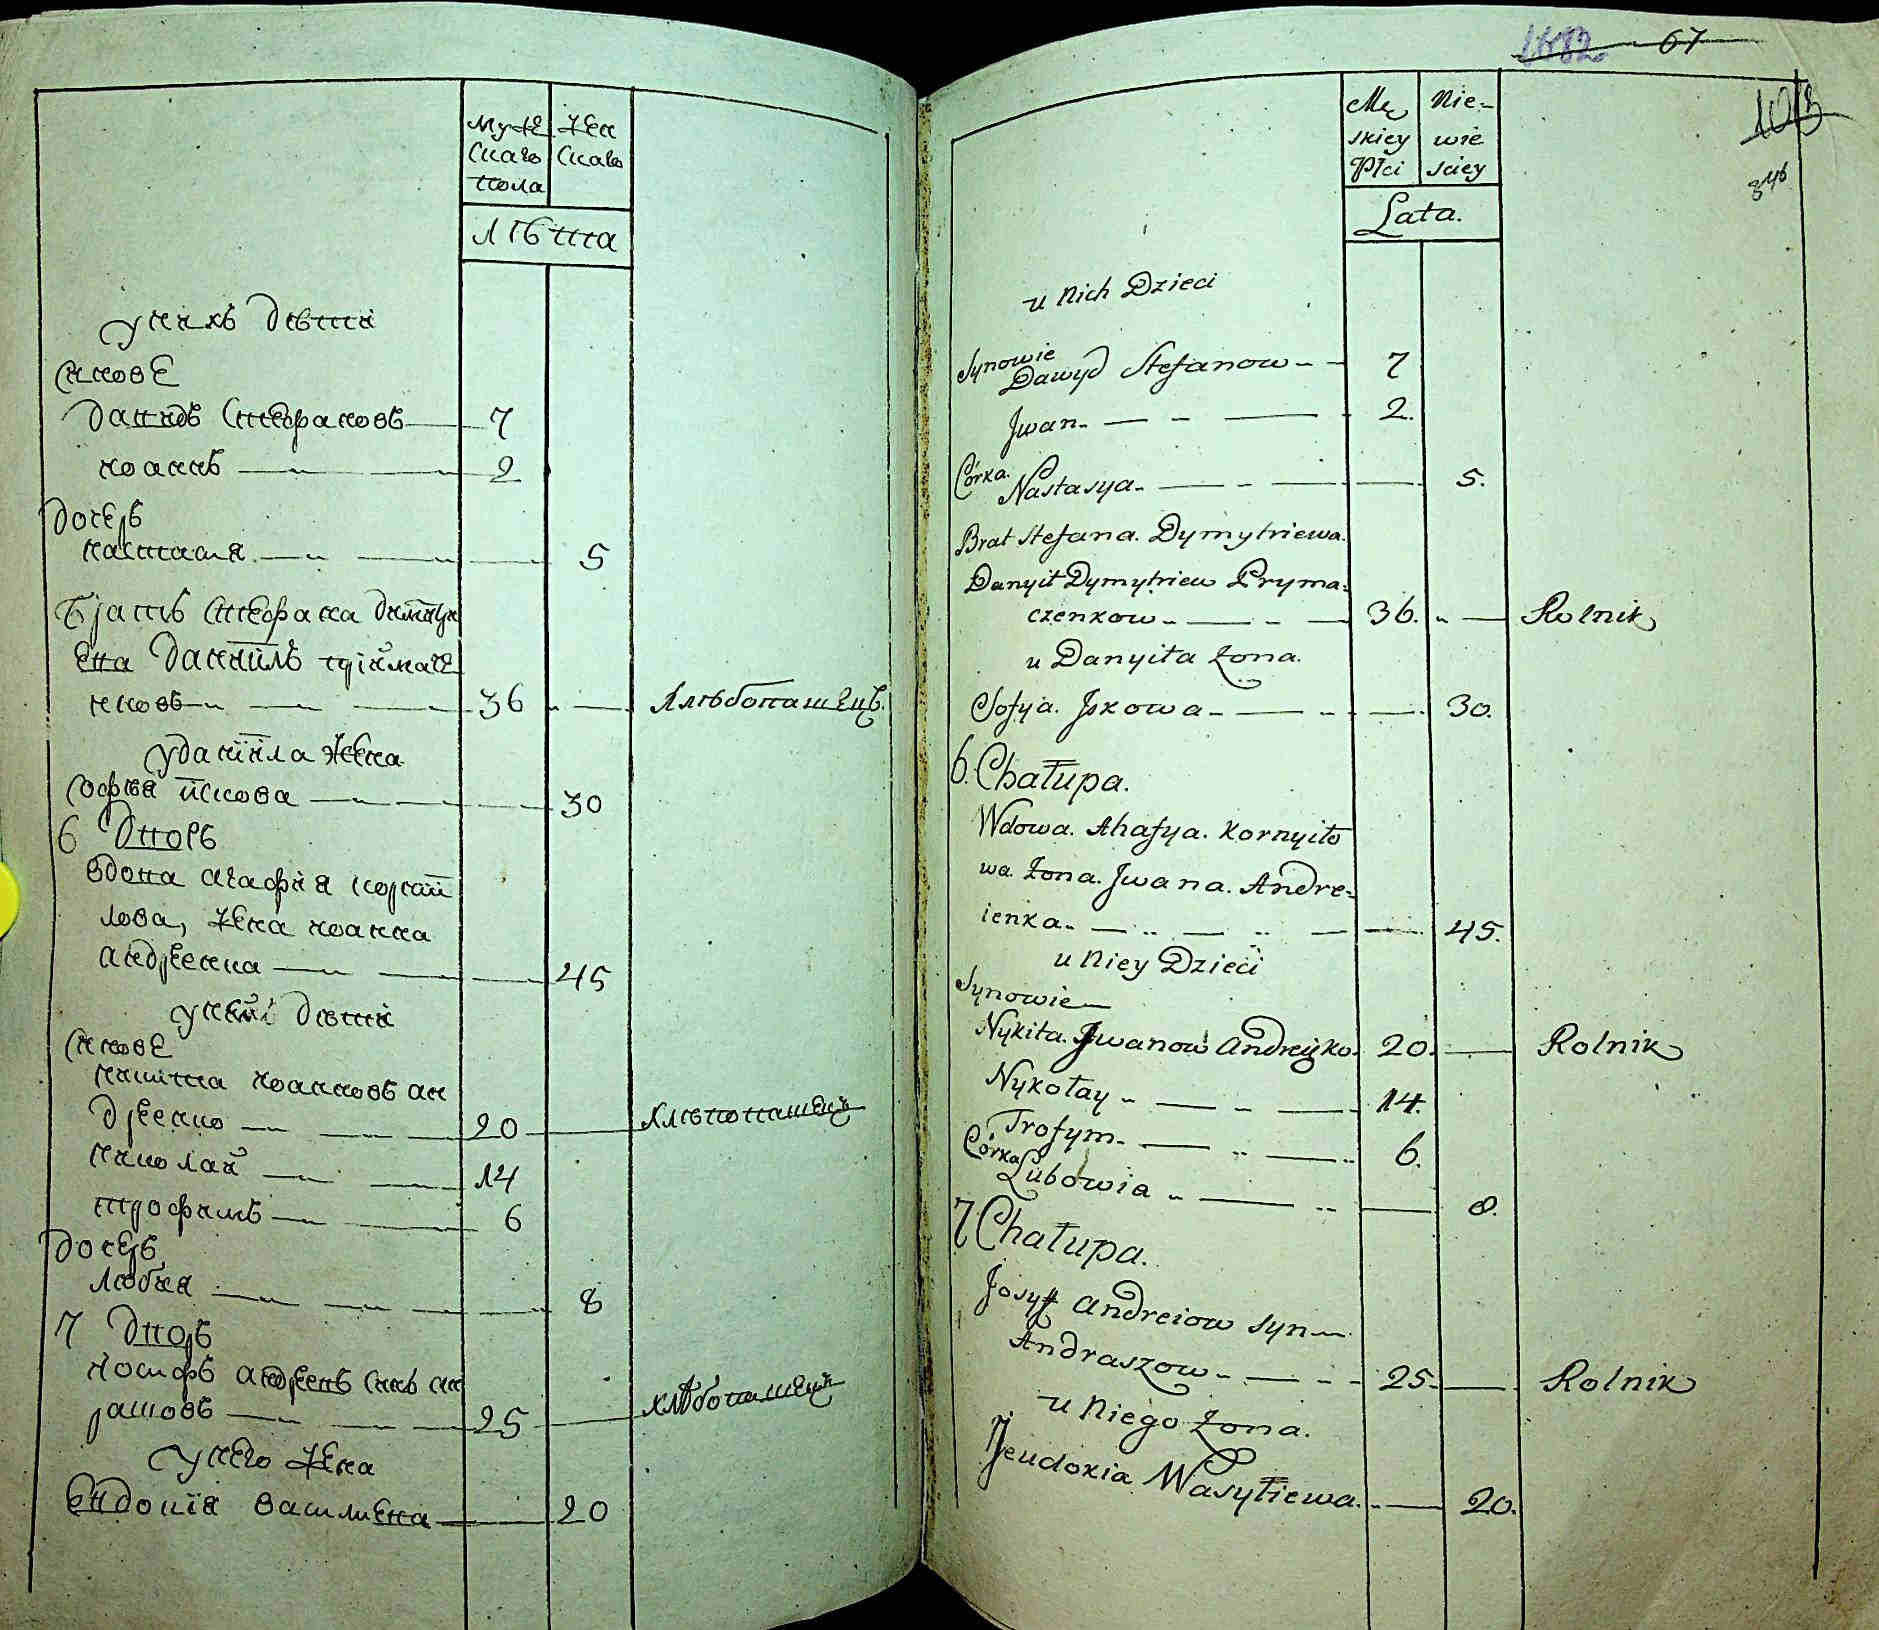 Мужеска­го
скаго
пола
Жен
скаго
лѣта
у нихъ дѣти
снове
давидъ стефановъ 7
иоаннъ 2
дочерь
настасия 5
братъ стефана димитри
ева даниилъ приймаче
нковъ 36 хлѣбопашецъ
у даниила жена
софия йскова 30
6 дворъ
вдова агафия корнии
лова, жена иоанна
андреенка 45
у ней дѣти
снове
никита иоанновъ ан
дреенко 20 хлѣбопашецъ
николай 14
трофимъ 6
дочерь
любвя 8
7 дворъ
иосифъ андреевъ снъ ан
рашовъ 25 хлѣбопашецъ
у него жена
евдокия василиева 20
1882 67
1013
346
Mę Nie-
skiey wie
Płci sciey
Lata.
u Nich Dzieci
Synowie
Dawyd Stefanow 7
Jwan 2.
Córka.
Nastasya 5.
Brat Stefana. Dymytriewa.
Danyił Dymytriew Pryma-
czenkow 36. Rolnik
u Danyiła Żona.
Sofya. Jskowa 30.
6. Chałupa.
Wdowa. Ahafya. Kornyiło
wa. Żona. Jwana. Andre-
ienka 45.
u Niey Dzieci
Synowie
Nykita. Jwanow Andreyko 20. Rolnik
Nykołay 14.
Trofym 6.
Córka
Lubowia 8.
7 Chałupa.
Josyf Andreiow Syn
Andraszow 25. Rolnik
u Niego Żona.
Jeudokia Wasyliewa. 20.